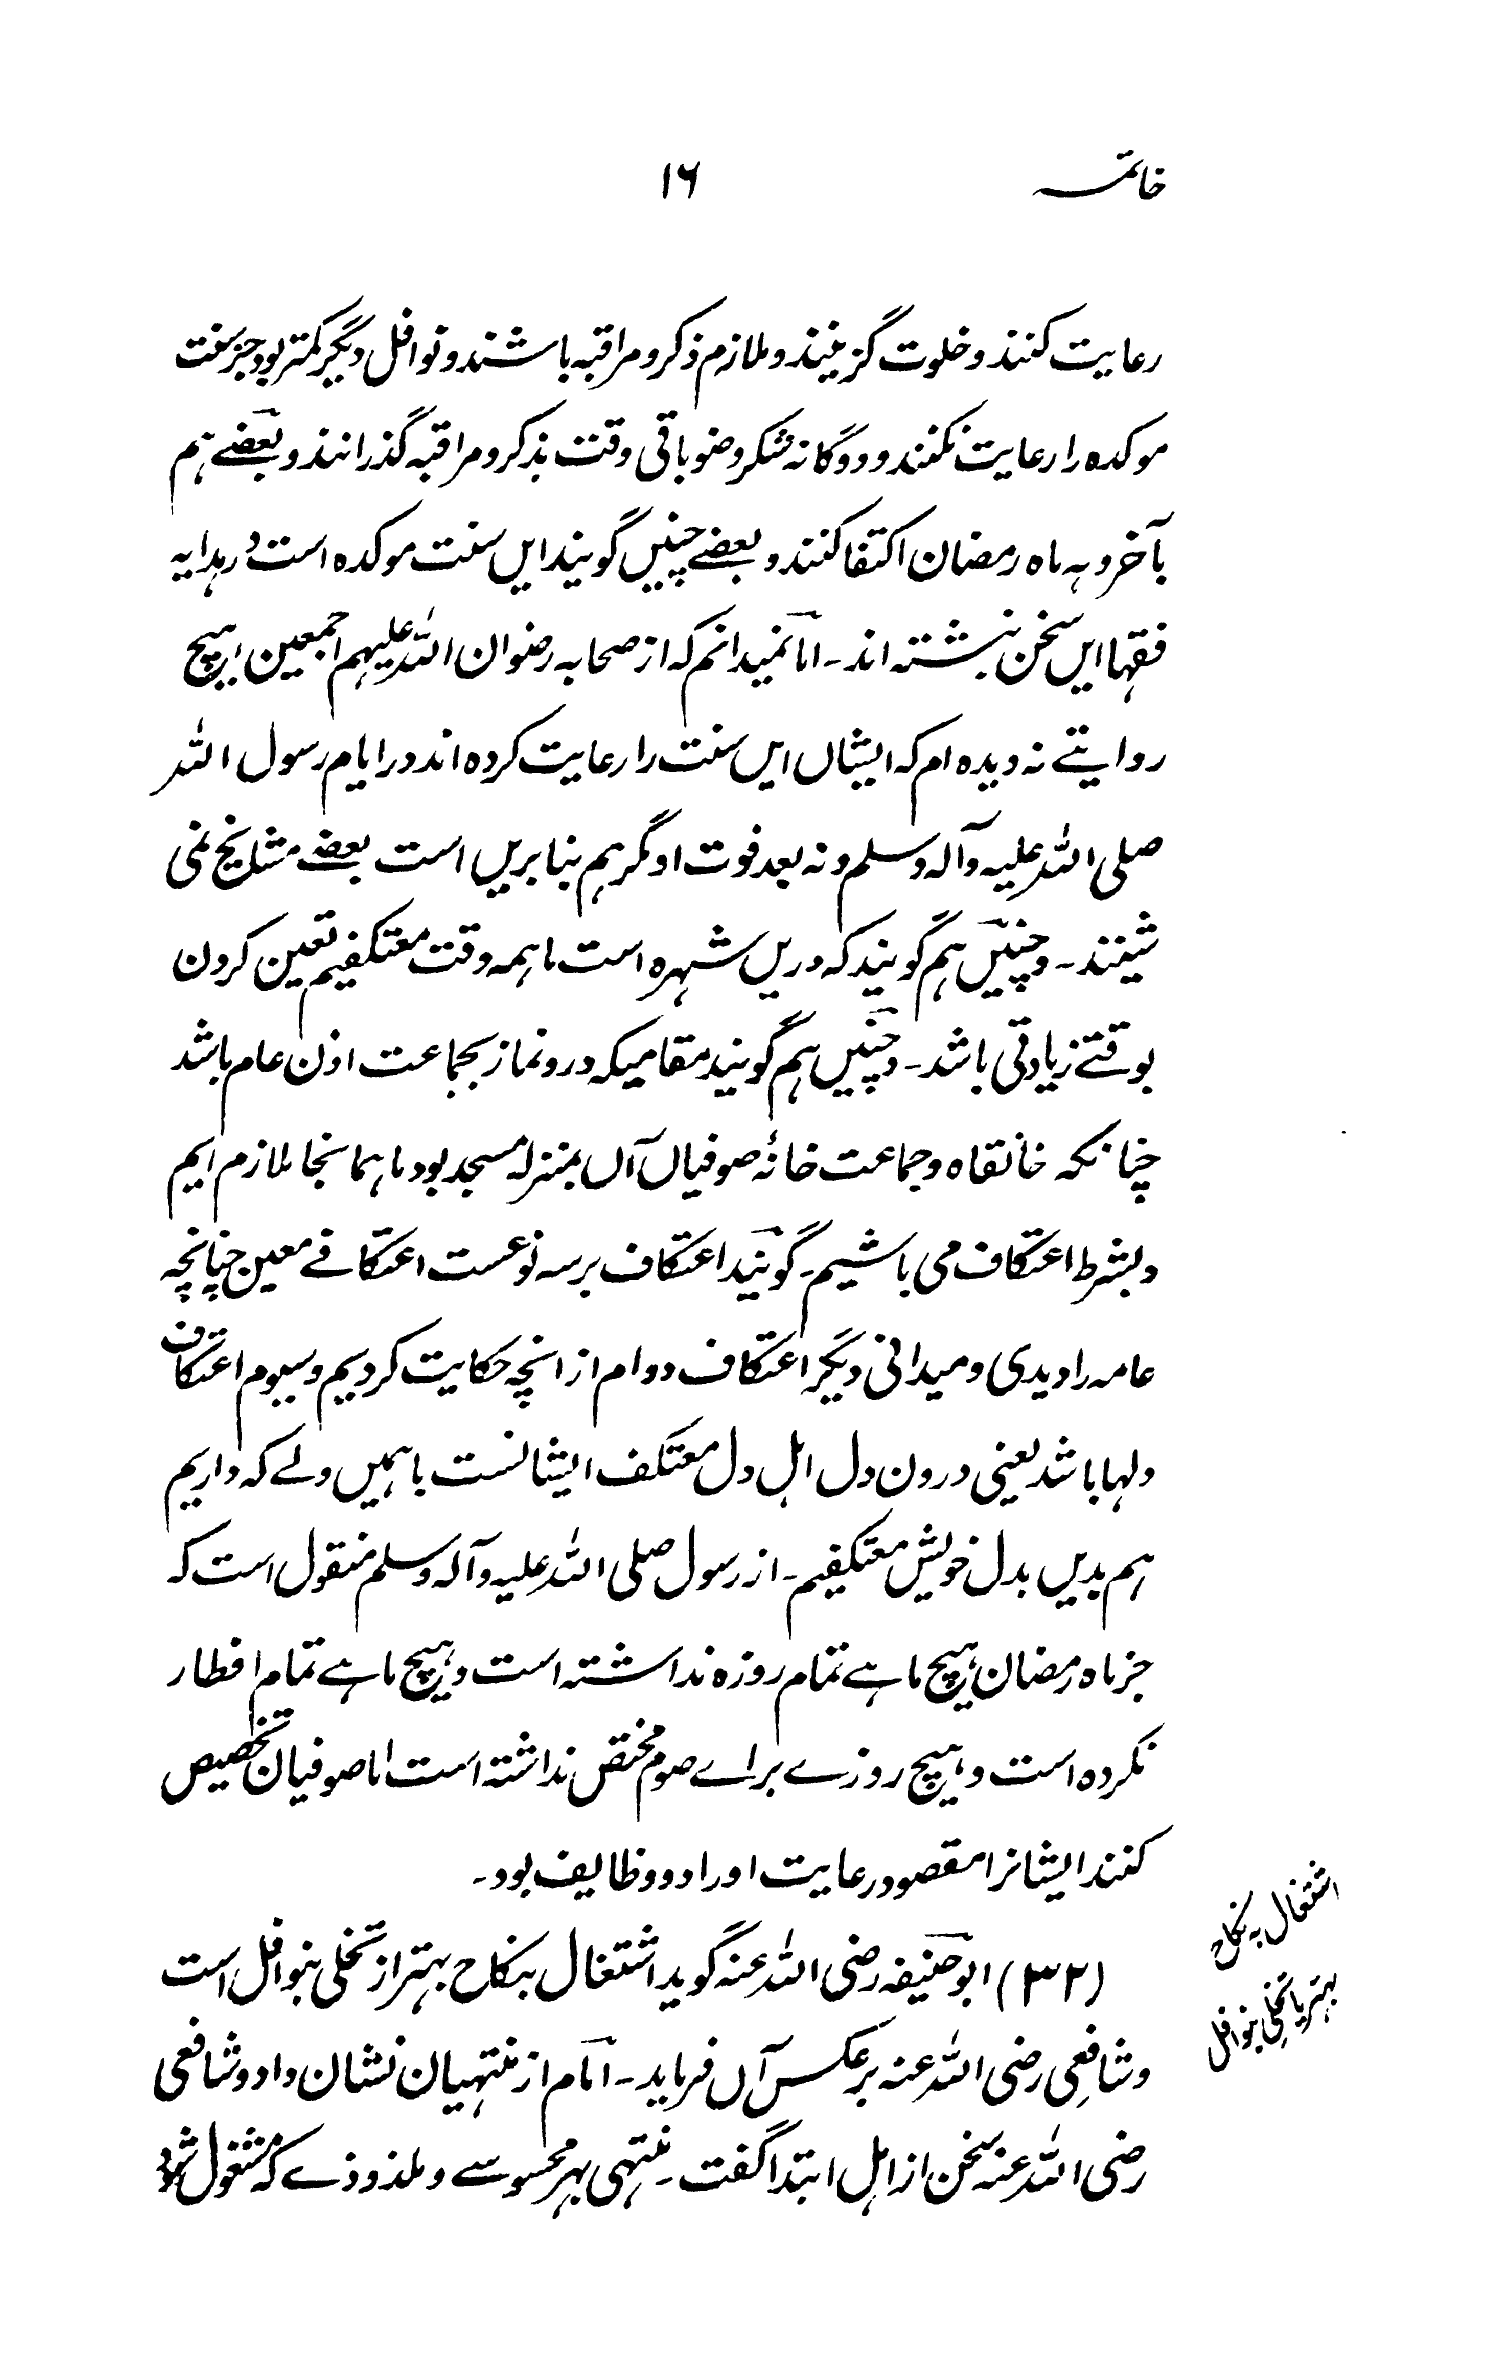 خاتمہ
۱۶
رعایت کنند و خلوت گزینند و ملازم ذکر و مراقبہ باشند و نوافل دیگر کمتر بود جز سنت
موکدہ را رعایت نکنند و دوگانہ شکر وضو باقی وقت بذکر و مراقبہ گذرانند و بعضے ہم
بآخر دہہ ماہ رمضان اکتفا کنند و بعضے چنیں گویند ایں سنت موکدہ است در ہدایہ
فقہا ایں سخن نبشتہ اند۔ اما نمیدانم کہ از صحابہ رضوان اللہ علیہم اجمعین ہیچ
روایتے نہ دیدہ ام کہ ایشاں ایں سنت را رعایت کردہ اند در ایام رسول اللہ
صلی اللہ علیہ وآلہ وسلم و نہ بعد فوت او مگر ہم بنابریں است بعضے مشایخ نمی
شینند۔ و چنیں ہم گویند کہ دریں شہرہ است ما ہمہ وقت معتکفیم تعین کردن
بوقتے زیادتی باشد۔ و چنیں ہم گویند مقامیکہ درو نماز بجماعت اذن عام باشد
چنانکہ خانقاہ و جماعت خانۂ صوفیاں آں بمنزلہ مسجد بود ما ہمانجا ملازم ایم
و بشرط اعتکاف می باشیم۔ گویند اعتکاف بر سہ نوعست اعتکافے معین چنانچہ
عامہ را دیدی و میدانی دیگر اعتکاف دوام از انچہ حکایت کردیم و سیوم اعتکاف
دلہا باشد یعنی درون دل اہل دل معتکف ایشانست باہمیں دلے کہ داریم
ہم بدیں بدل خویش معتکفیم۔ از رسول صلی اللہ علیہ وآلہ وسلم منقول است کہ
جز ماہ رمضان ہیچ ماہے تمام روزہ نداشتہ است و ہیچ ماہے تمام افطار
نکردہ است و ہیچ روزے برائے صوم مختص نداشتہ است اما صوفیان تخصیص
کنند ایشانرا مقصود رعایت اوراد و وظایف بود۔
(۳۲) ابو حنیفہ رضی اللہ عنہ گوید اشتغال بنکاح بہتر از تخلی بنوافل است
و شافعی رضی اللہ عنہ بر عکس آں فرماید۔ امام از منتہیان نشان داد و شافعی
رضی اللہ عنہ سخن از اہل ابتدا گفت۔ منتہی بہر محسوسے و ملذوذے کہ مشغول شود
اشتغال بہ نکاح
بہتر یا تخلی بنوافل